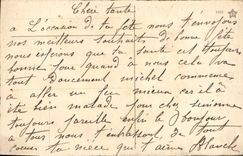 Chère tante
à l'occasion de ta fête nous t'envoyons
nos meilleurs souhaits de bonne fête
nous esperons que ta santé est toujours
bonne pour quand à nous cela va
tout doucement michel commence
a aller un peu mieux car il a
ete bien malade pour chez
toujours pareille enfin le bonjour
à tous nous t'embrassons de tout
coeur ta niece qui t'aime Blanche